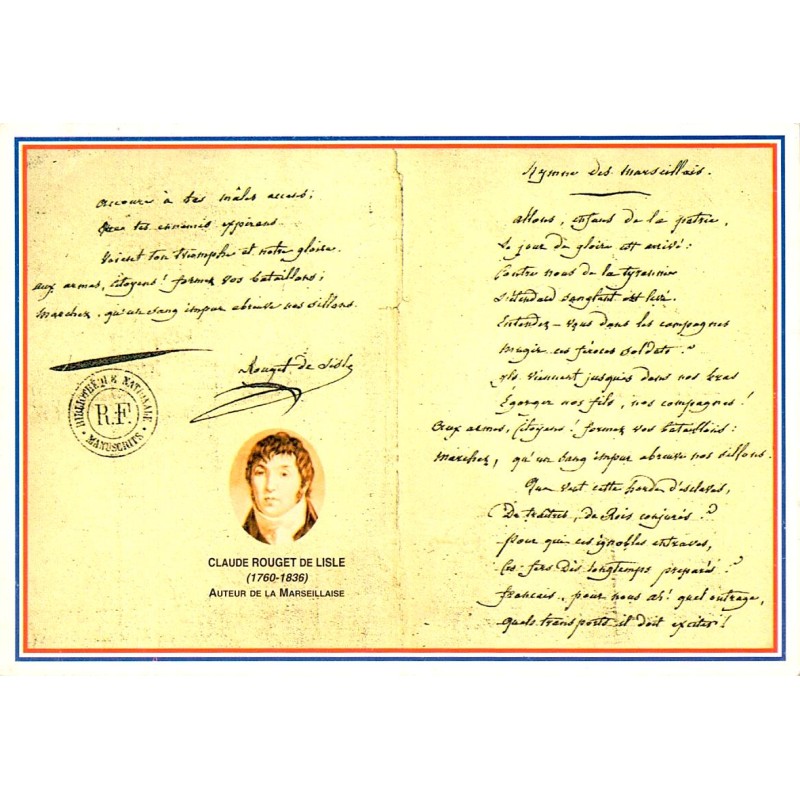 accoure à tes mâles accens;
Que tes ennemis expirans
voient ton triomphe et notre gloire.
aux armes, citoyens! formez vos bataillons;
marchez, qu'un sang impur abreuve nos sillons.
Rouget de Lisle
BIBLIOTHÈQUE NATIONALE
R.F.
MANUSCRITS
CLAUDE ROUGET DE LISLE
(1760-1836)
AUTEUR DE LA MARSEILLAISE
Hymne des marseillais.
allons, enfans de la patrie,
Le jour de gloire est arrivé:
Contre nous de la tyrannie
L'étendard sanglant est levé.
Entendez-vous dans les campagnes
mugir ces féroces soldats?
ils viennent jusques dans nos bras
Egorger nos fils, nos compagnes!
aux armes, citoyens! formez vos bataillons:
marchez, qu'un sang impur abreuve nos sillons.
Que veut cette horde d'esclaves,
De traîtres, de Rois conjurés?
pour qui ces ignobles entraves,
Ces fers dès longtemps preparés?
français, pour nous ah! quel outrage,
quels transports il doit exciter!